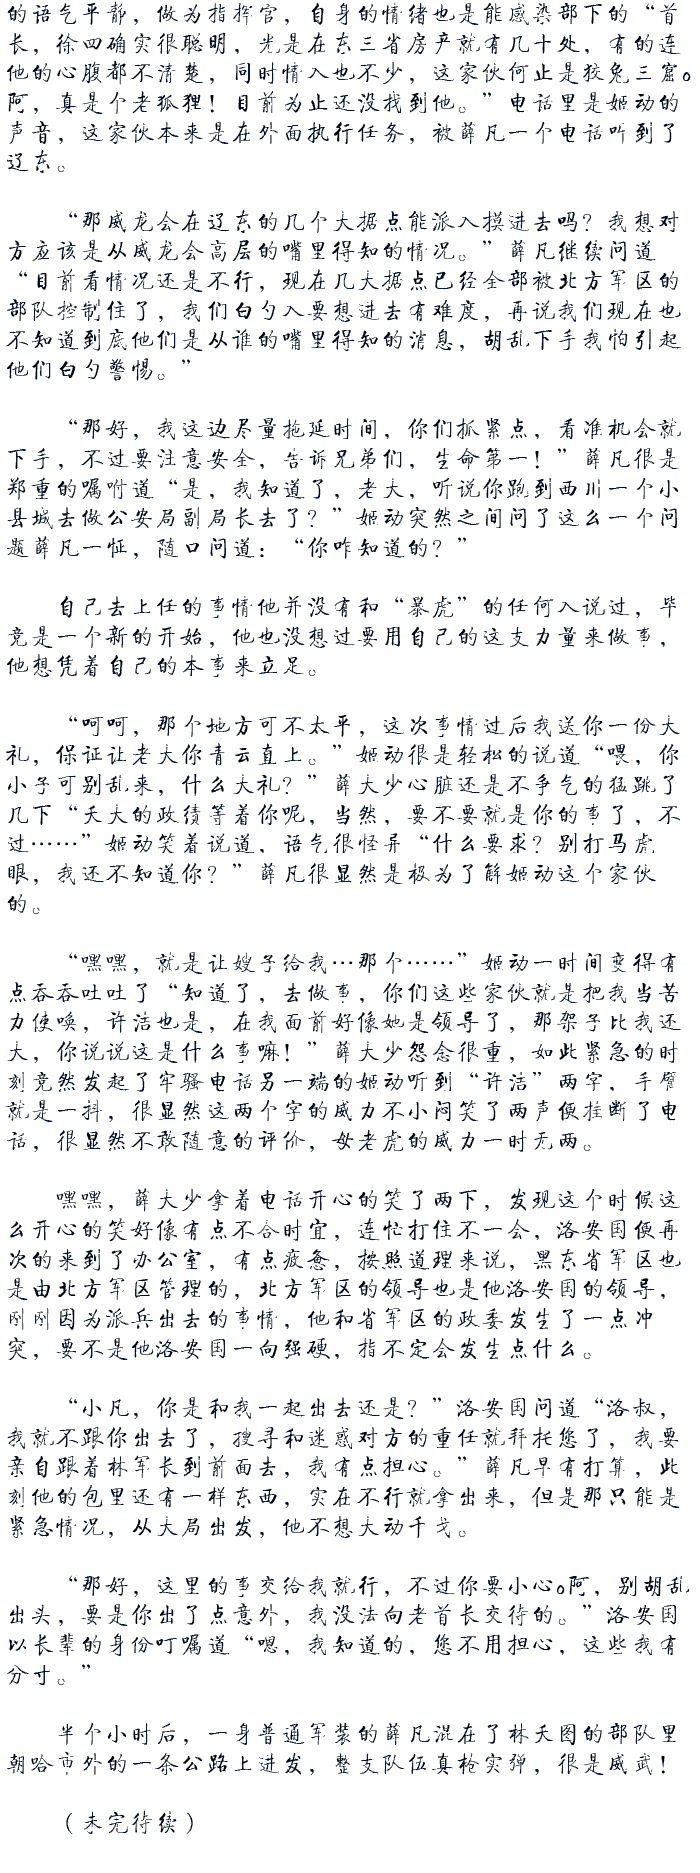 的语气平静，做为指挥官，自身的情绪也是能感染部下的“首
长，徐四确实很聪明，光是在东三省房产就有几十处，有的连
他的心腹都不清楚，同时情人也不少，这家伙何止是狡兔三窟。
阿，真是个老狐狸！目前为止还没找到他。”电话里是姬动的
声音，这家伙本来是在外面执行任务，被薛凡一个电话听到了
辽东。
“那威龙会在辽东的几个大据点能派人摸进去吗？我想对
方应该是从威龙会高层的嘴里得知的情况。”薛凡继续问道
“目前看情况还是不行，现在几大据点已经全部被北方军区的
部队控制住了，我们白勺人要想进去有难度，再说我们现在也
不知道到底他们是从谁的嘴里得知的消息，胡乱下手我怕引起
他们白勺警惕。”
“那好，我这边尽量拖延时间，你们抓紧点，看准机会就
下手，不过要注意安全，告诉兄弟们，生命第一！”薛凡很是
郑重的嘱咐道“是，我知道了，老大，听说你跑到西川一个小
县城去做公安局副局长去了？”姬动突然之间问了这么一个问
题薛凡一怔，随口问道：“你咋知道的？”
自己去上任的事情他并没有和“暴虎”的任何人说过，毕
竟是一个新的开始，他也没想过要用自己的这支力量来做事，
他想凭着自己的本事来立足。
“呵呵，那个地方可不太平，这次事情过后我送你一份大
礼，保证让老大你青云直上。”姬动很是轻松的说道“喂，你
小子可别乱来，什么大礼？”薛大少心脏还是不争气的猛跳了
几下“天大的政绩等着你呢，当然，要不要就是你的事了，不
过……”姬动笑着说道，语气很怪异“什么要求？别打马虎
眼，我还不知道你？”薛凡很显然是极为了解姬动这个家伙
的。
“嘿嘿，就是让嫂子给我…那个……”姬动一时间变得有
点吞吞吐吐了“知道了，去做事，你们这些家伙就是把我当苦
力使唤，许洁也是，在我面前好像她是领导了，那架子比我还
大，你说说这是什么事嘛！”薛大少怨念很重，如此紧急的时
刻竟然发起了牢骚电话另一端的姬动听到“许洁”两字，手臂
就是一抖，很显然这两个字的威力不小闷笑了两声便挂断了电
话，很显然不敢随意的评价，母老虎的威力一时无两。
嘿嘿，薛大少拿着电话开心的笑了两下，发现这个时候这
么开心的笑好像有点不合时宜，连忙打住不一会，洛安国便再
次的来到了办公室，有点疲惫，按照道理来说，黑东省军区也
是由北方军区管理的，北方军区的领导也是他洛安国的领导，
刚刚因为派兵出去的事情，他和省军区的政委发生了一点冲
突，要不是他洛安国一向强硬，指不定会发生点什么。
“小凡，你是和我一起出去还是？”洛安国问道“洛叔，
我就不跟你出去了，搜寻和迷惑对方的重任就拜托您了，我要
亲自跟着林军长到前面去，我有点担心。”薛凡早有打算，此
刻他的包里还有一样东西，实在不行就拿出来，但是那只能是
紧急情况，从大局出发，他不想大动干戈。
“那好，这里的事交给我就行，不过你要小心。阿，别胡乱
出头，要是你出了点意外，我没法向老首长交待的。”洛安国
以长辈的身份叮嘱道“嗯，我知道的，您不用担心，这些我有
分寸。”
半个小时后，一身普通军装的薛凡混在了林天图的部队里
朝哈市外的一条公路上进发，整支队伍真枪实弹，很是威武！
（未完待续）